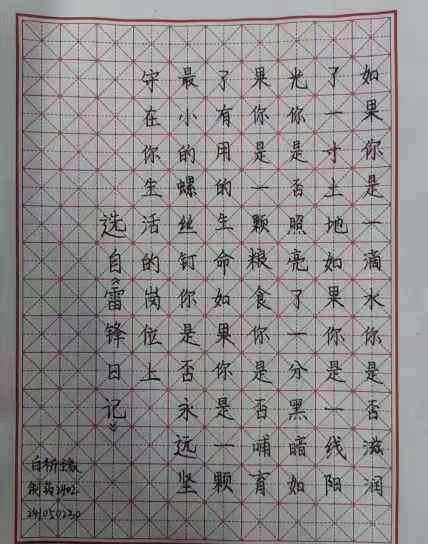 如果你是一滴水你是否滋润
了一寸土地如果你是一线阳
光你是否照亮了一分黑暗如
果你是一颗粮食你是否哺育
了有用的生命如果你是一颗
最小的螺丝钉你是否永远坚
守在你生活的岗位上
选自《雷锋日记》
制药2402
241050230